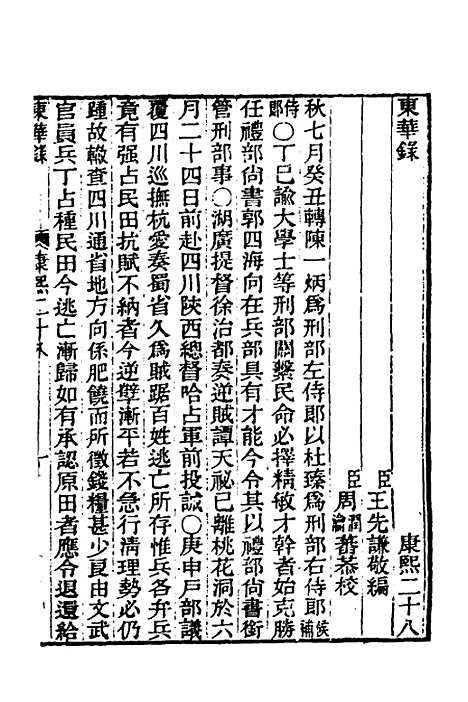 東華錄　康熙二十八
臣王先謙敬編
臣周潤蕃恭校
秋七月癸丑轉陳一炳爲刑部左侍郎以杜臻爲刑部右侍郎候補
侍郎〇丁巳諭大學士等刑部關繫民命必擇精敏才幹者始克勝
任禮部尙書郭四海向在兵部具有才能今令其以禮部尙書銜
管刑部事〇湖廣提督徐治都奏逆賊譚天祕已離桃花洞於六
月二十四日前赴四川陝西總督哈占軍前投誠〇庚申戸部議
覆四川巡撫杭愛奏蜀省久爲賊踞百姓逃亡所存惟兵各弁兵
竟有强占民田抗賦不納者今逆孽漸平若不急行清理勢必仍
踵故轍查四川通省地方向係肥饒而所徵錢糧甚少良由文武
官員兵丁占種民田今逃亡漸歸如有承認原田者應令退還給
東華錄　康熙二十八　一